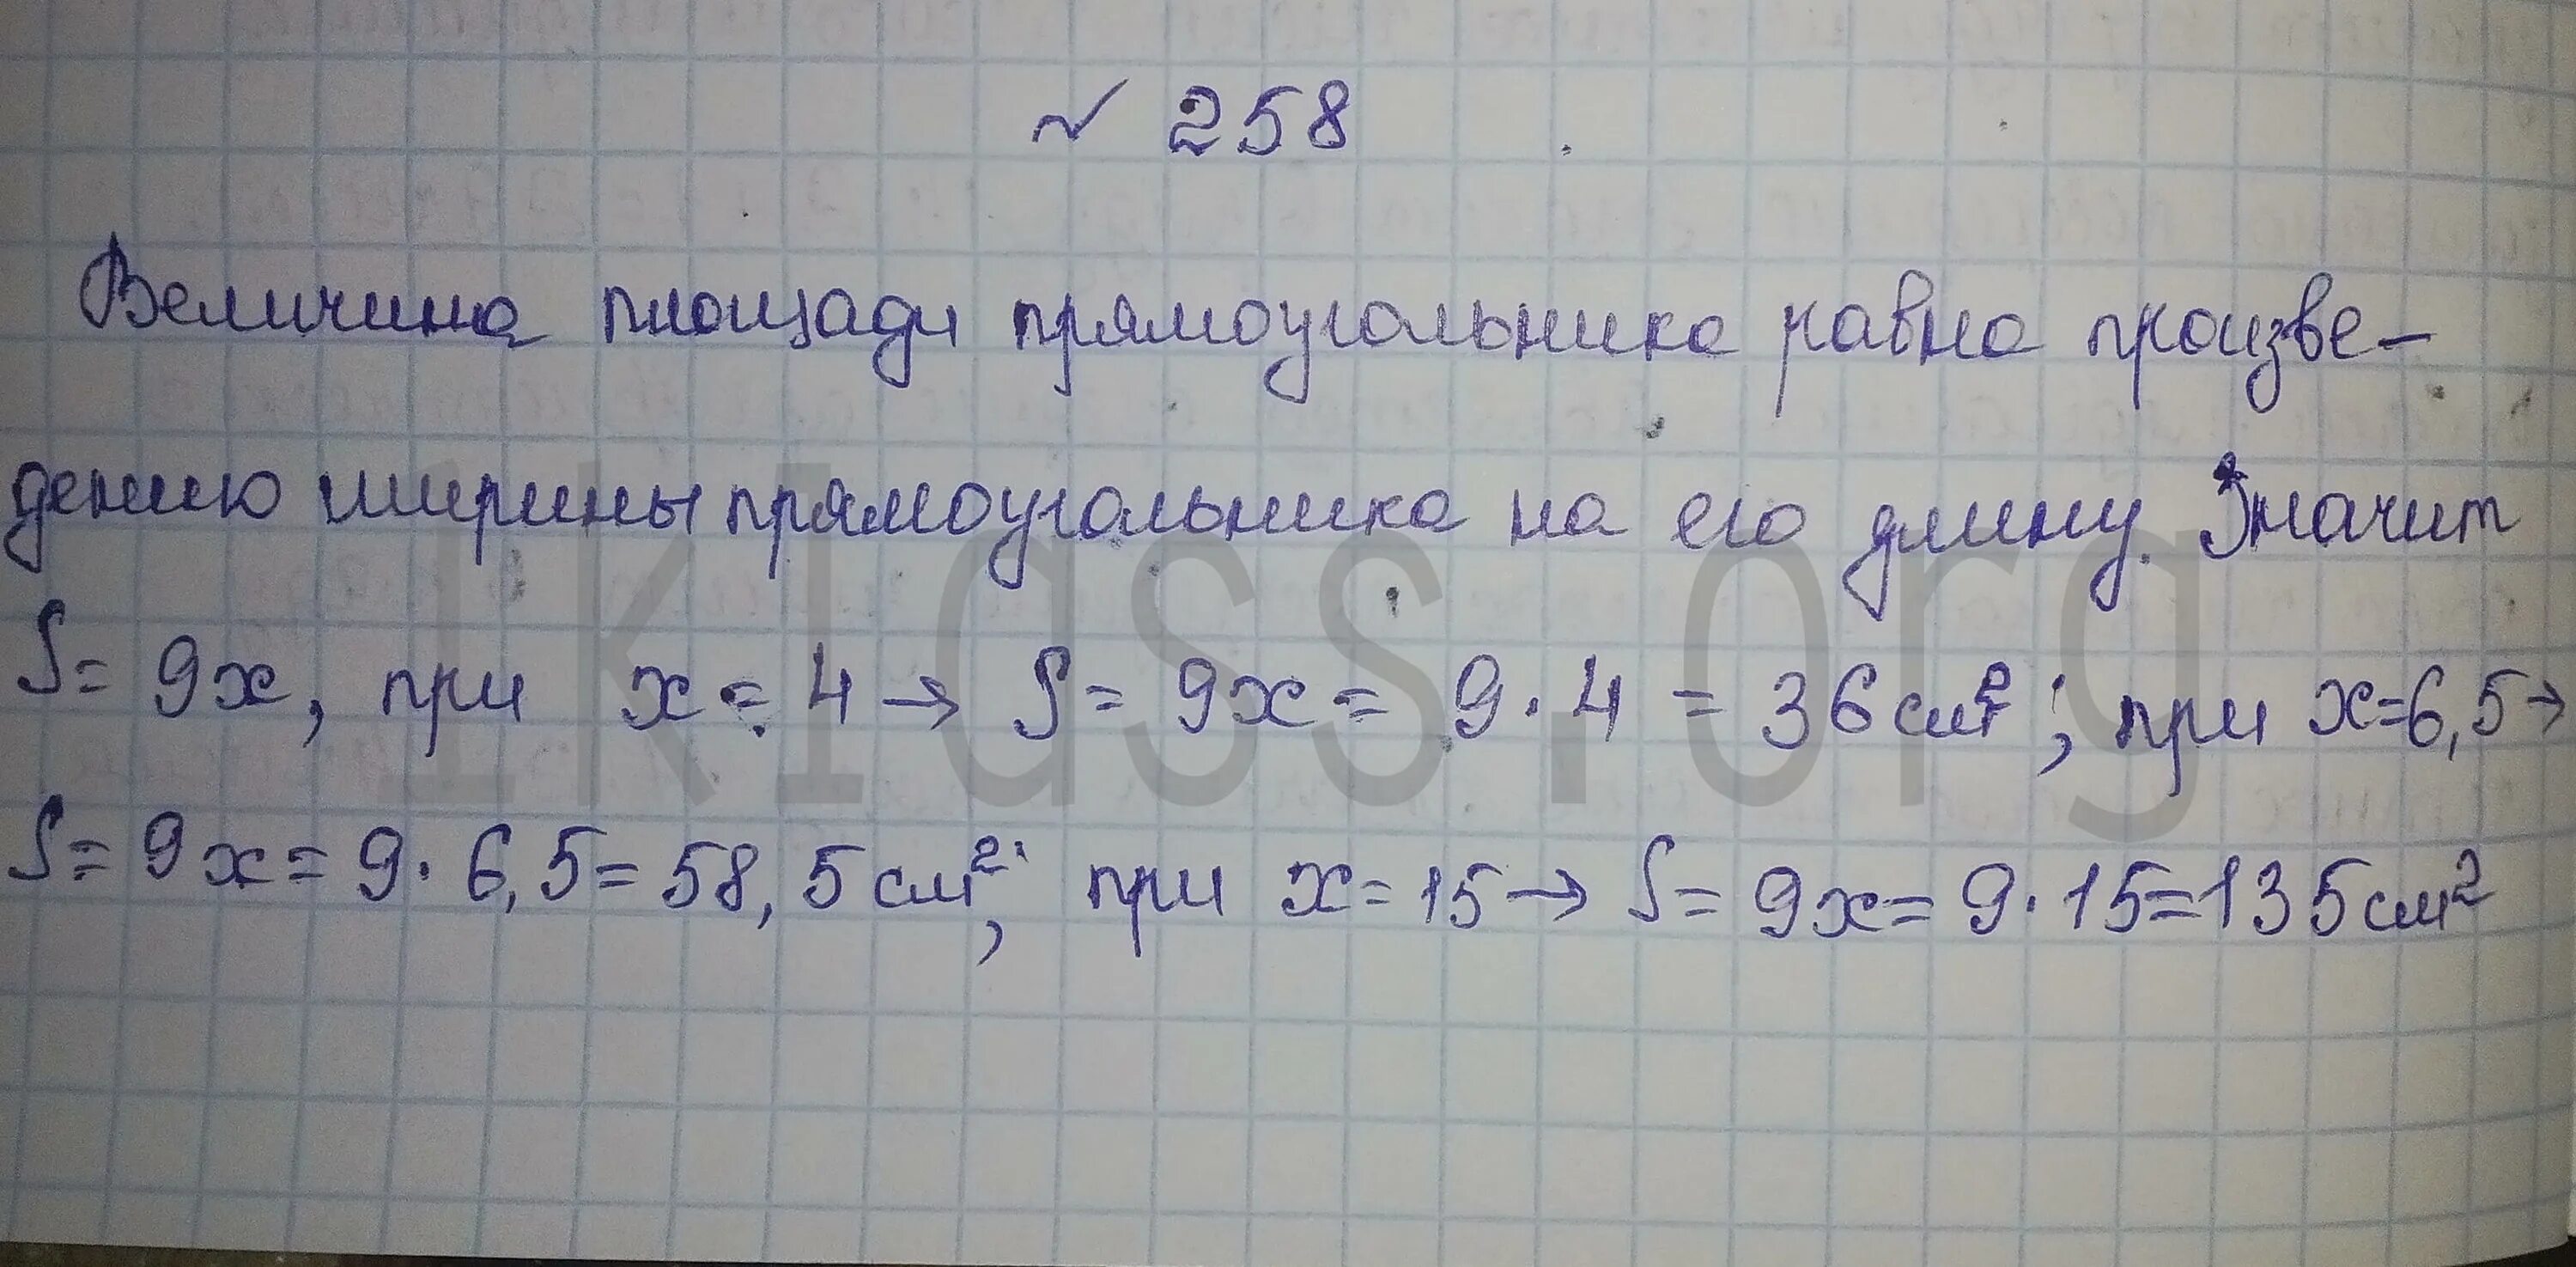 № 258
Величина площади прямоугольника равна произве-
дению ширины прямоугольника на его длину. Значит
S= 9x, при x = 4 → S= 9x = 9·4 = 36 см²; при x=6,5→
S= 9x = 9·6,5=58,5 см²; при x=15→ S= 9x=9·15=135см²
1klass.org